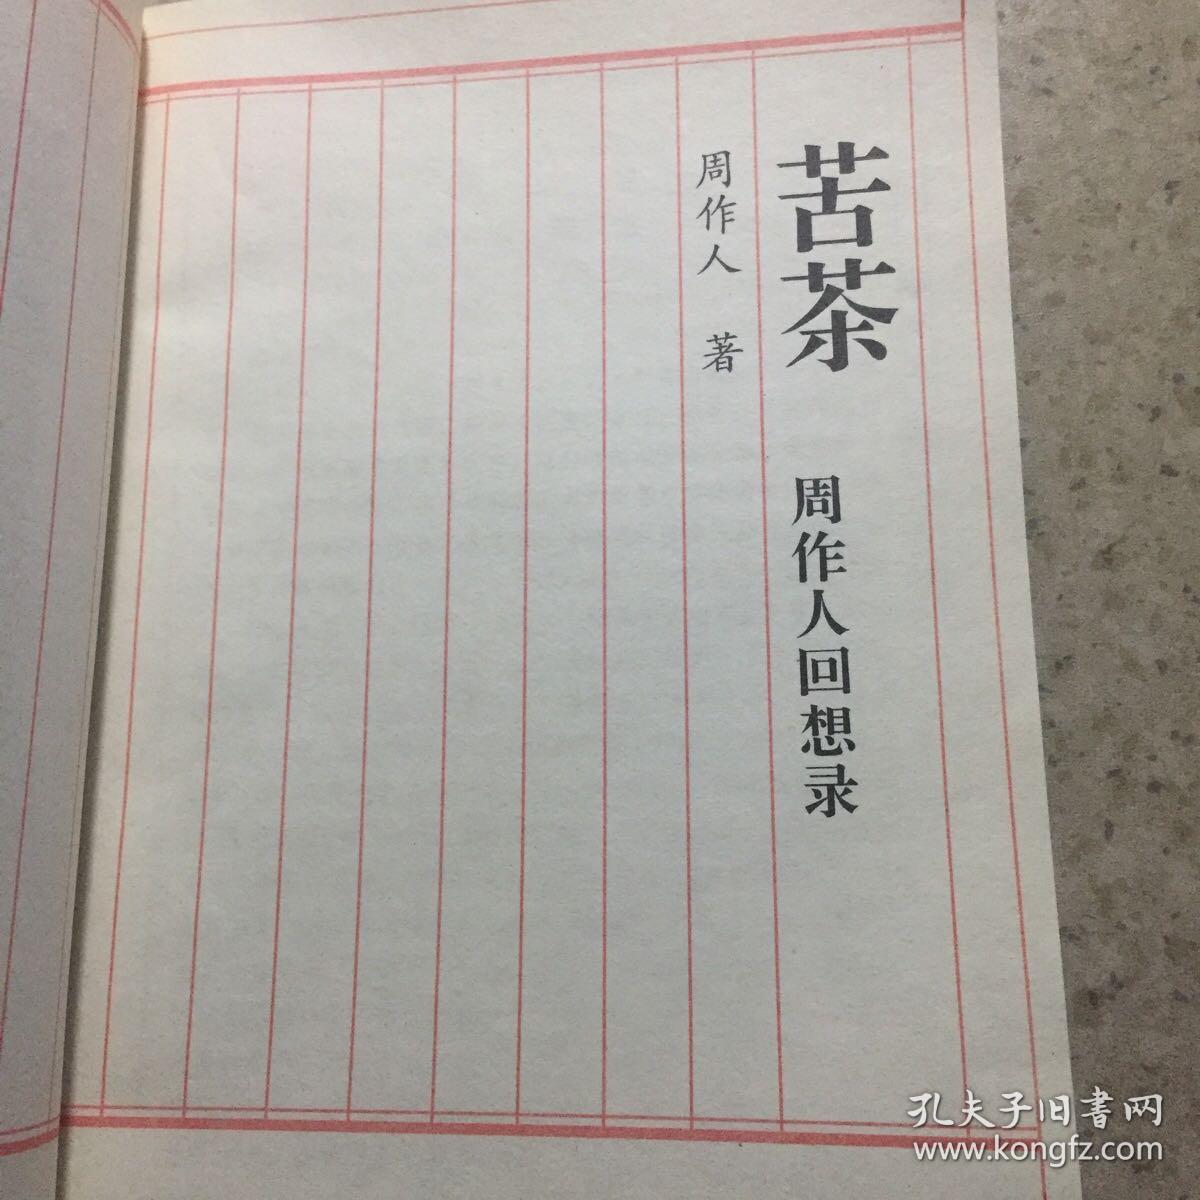 苦茶
周作人回想录
周作人 著
孔夫子旧書网
www.kongfz.com